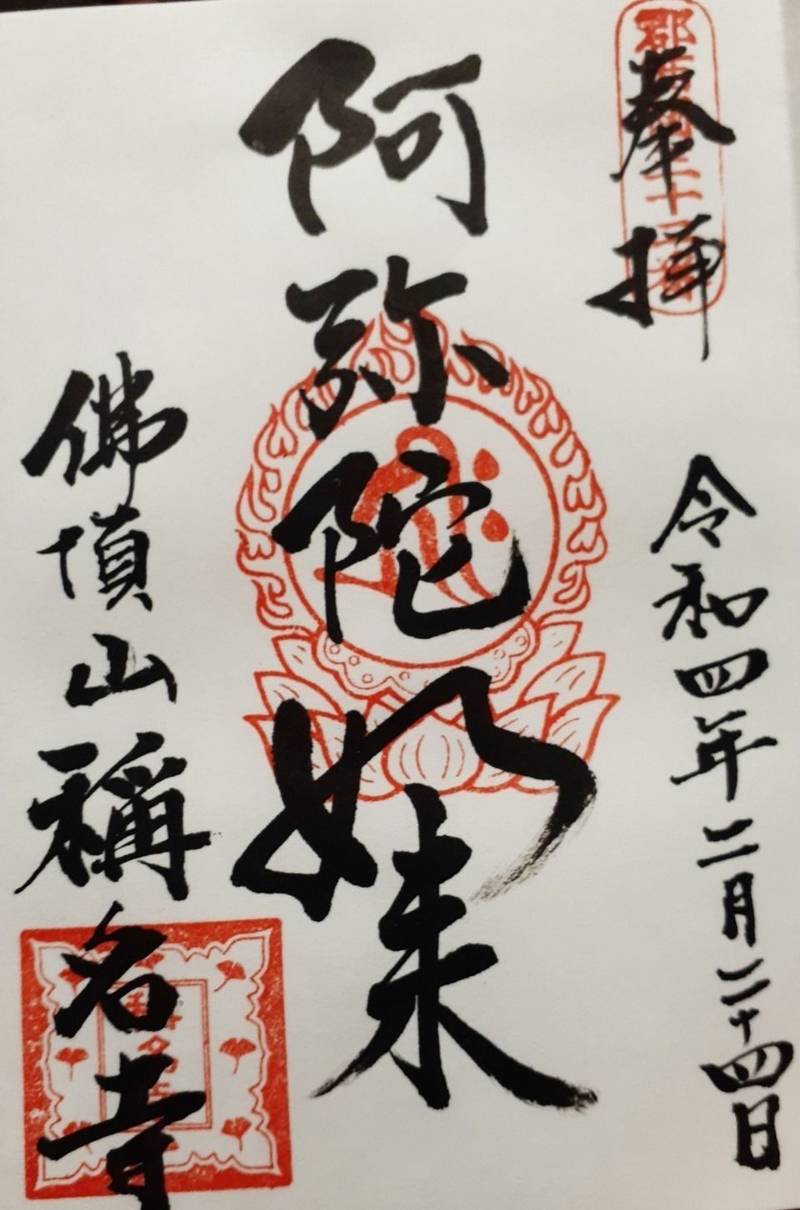 奉拝
令和四年二月二十四日
阿弥陀如来
佛頂山稱名寺